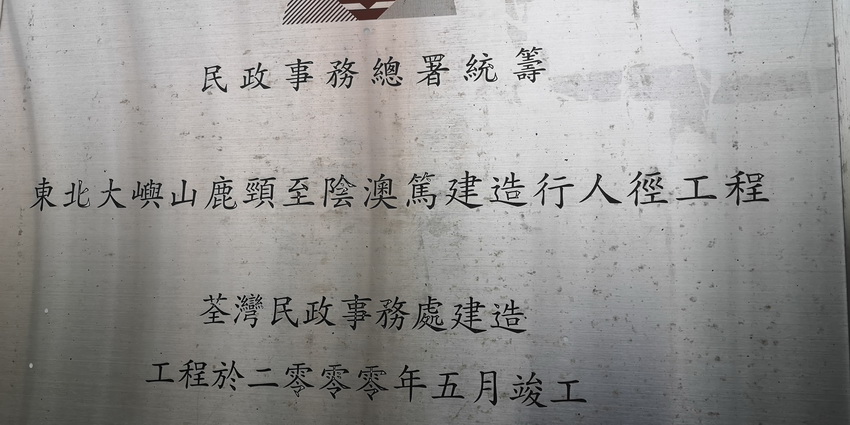 民政事務總署統籌
東北大嶼山鹿頸至陰澳篤建造行人徑工程
荃灣民政事務處建造
工程於二零零零年五月竣工